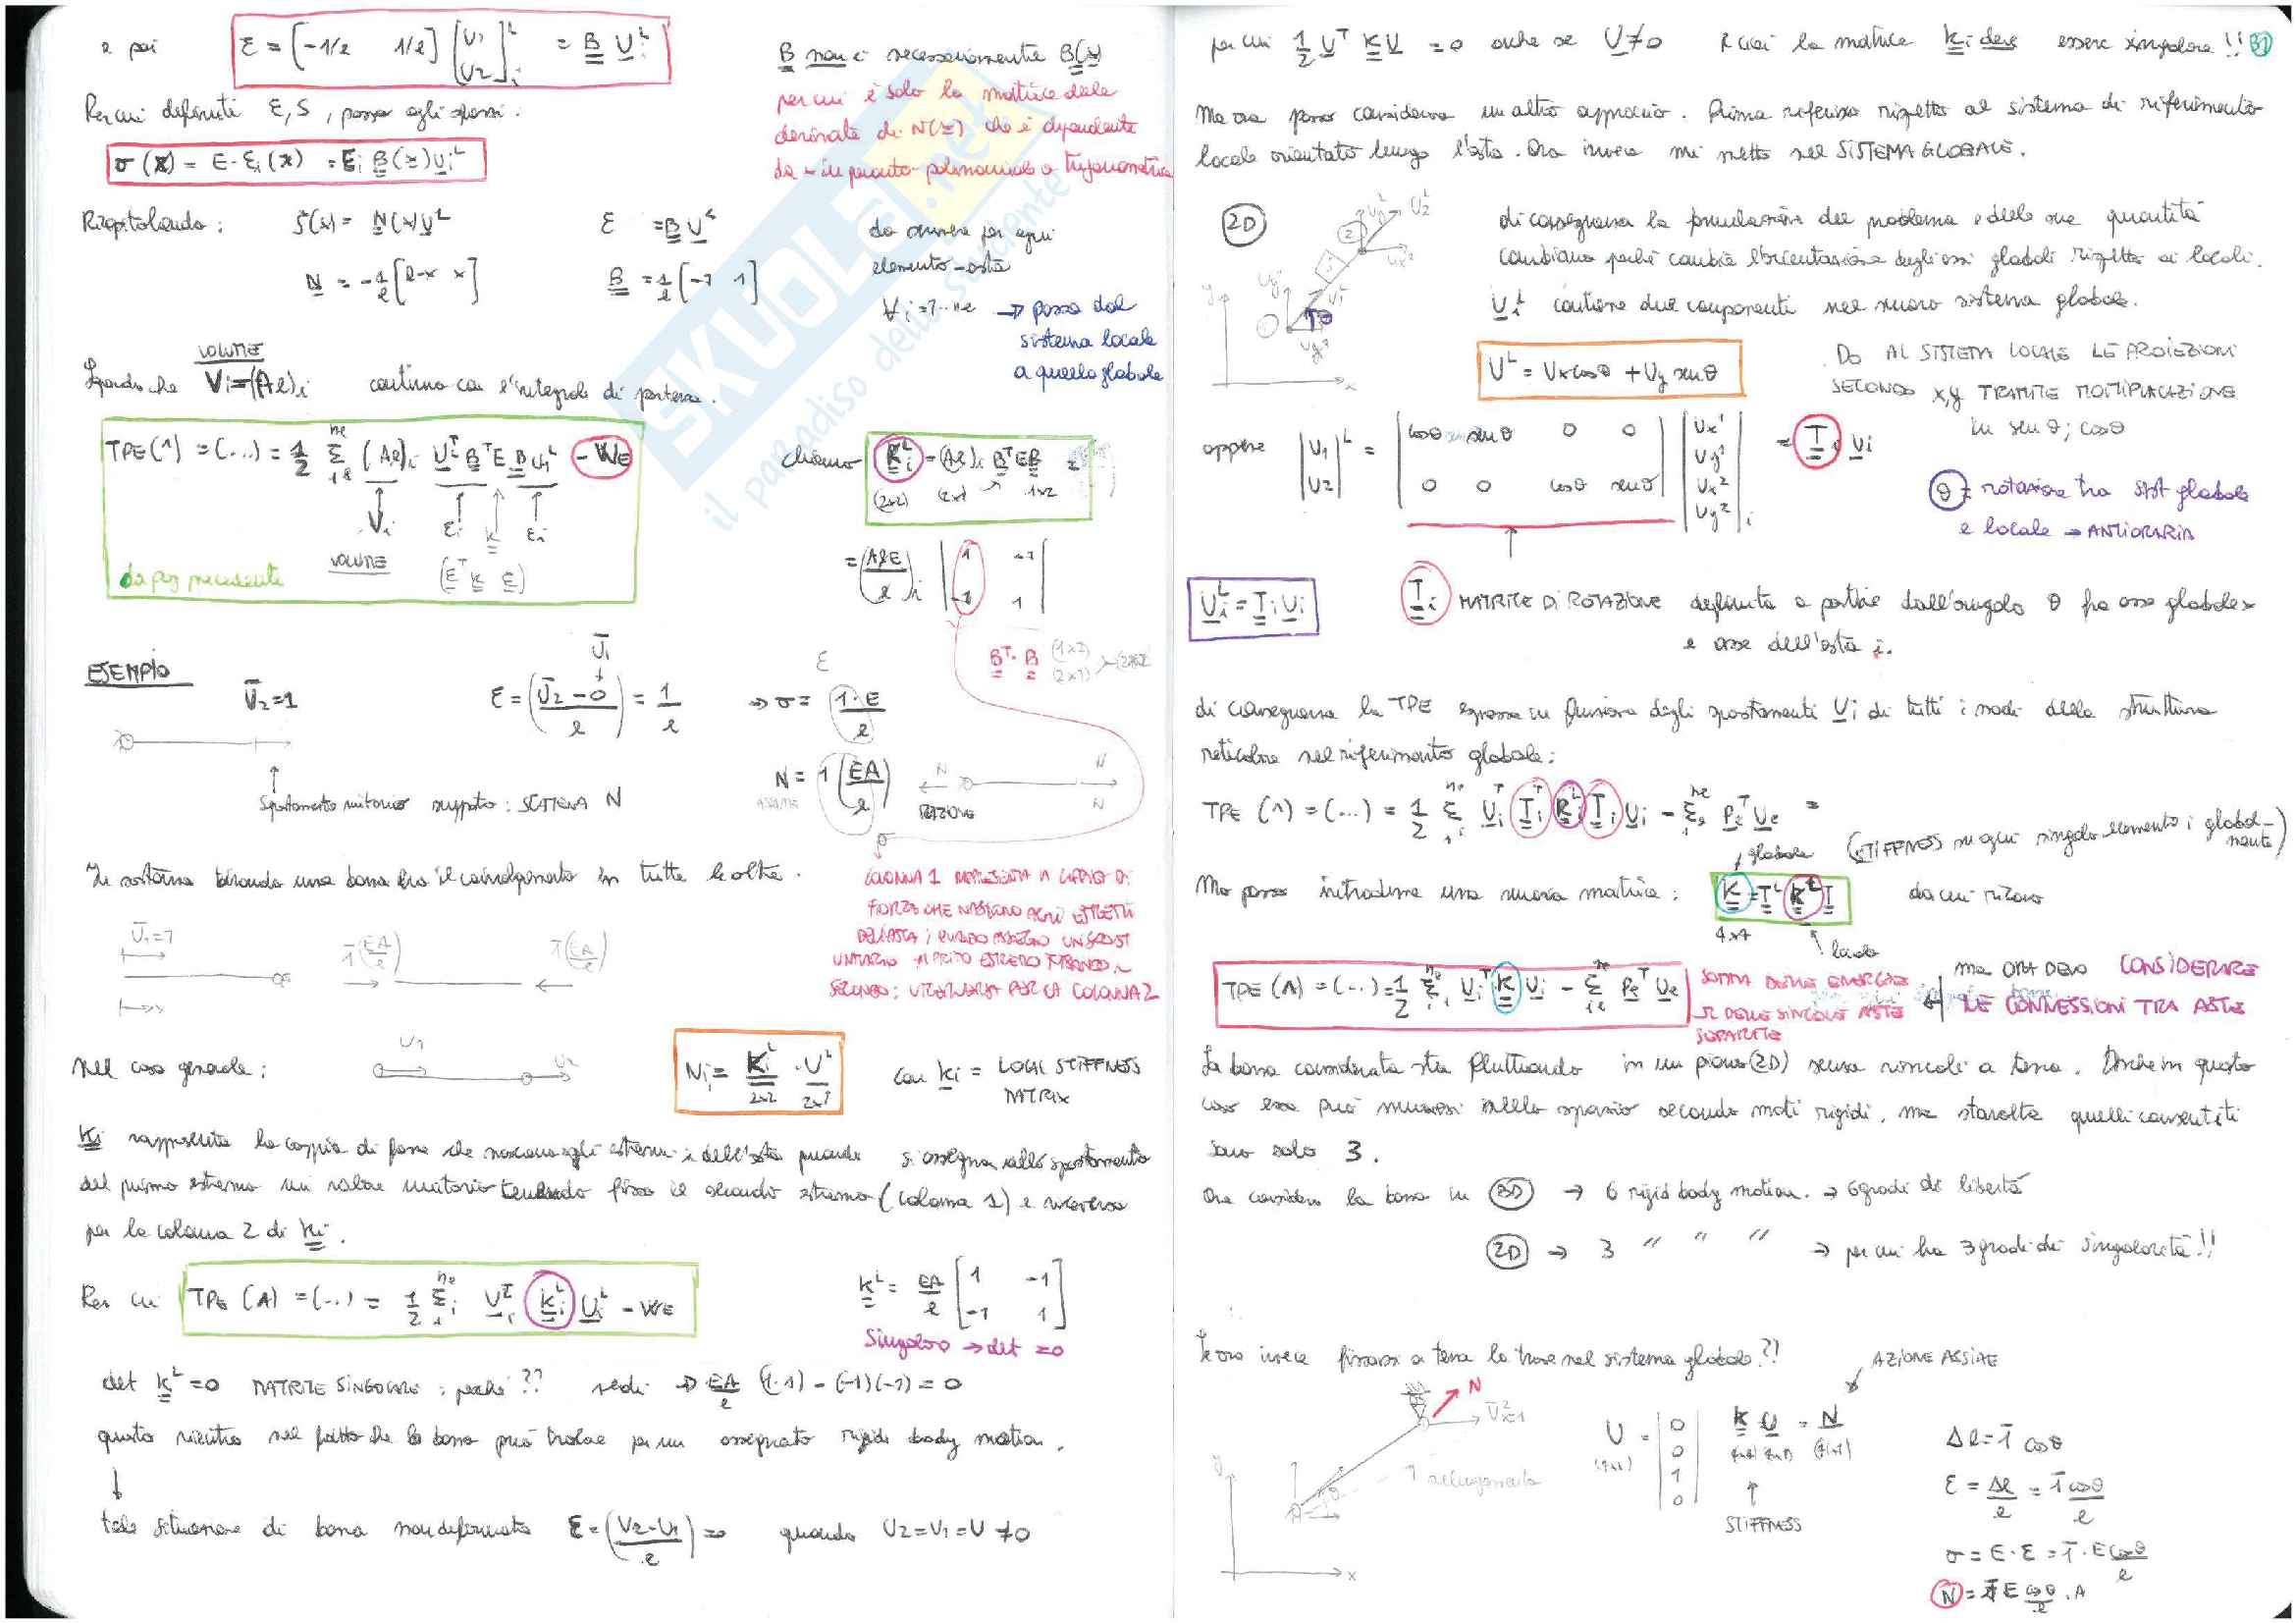 e poi ε = [-1/l 1/l] [U1 U2]ᴸᵢ = B Uᵢᴸ
Per cui definiti E, S, passo agli sforzi:
σ(x) = E·εᵢ(x) = Eᵢ B(x) Uᵢᴸ
B non è necessariamente B(x)
per cui è solo la matrice delle
derivate di N(x) che è dipendente
da x in quanto polinomiale o trigonometrica
Riepilogando: S(x) = N(x)Uᴸ ε = B Uᴸ
N = -1/l [l-x x] B = 1/l [-1 1]
da scrivere per ogni
elemento-asta
∀ i=1...ne → passo dal
sistema locale
a quello globale
VOLUME
Vᵢ=(Al)ᵢ continuo con l'integrale di partenza.
TPE(Λ) = (...) = 1/2 Σ (Al)ᵢ Uᵢᵀ Bᵀ E B Uᵢᴸ - WE
Vᵢ εᵢ K εᵢ
VOLUME (εᵀ K ε)
da pag precedente
chiamo Kᵢᴸ = (Al)ᵢ Bᵀ E B
(2x2) (2x1) 1x2
= (AlE/l)ᵢ | 1 -1 |
| -1 1 |
Bᵀ·B (1x2)
(2x1)
ESEMPIO
U̅2=1 ε = (U̅2-0 / l) = 1/l → σ = 1·E/l
U̅1
N = 1 (EA/l)
REAZIONE
Spostamento unitario assegnato: SCATENA N
In sostanza tirando una barra ho il coinvolgimento in tutte le altre.
COLONNA 1 RAPPRESENTA LA COPPIA DI
FORZE CHE NASCONO AGLI ESTREMI
DELL'ASTA i QUANDO ASSEGNO UN SPOST
UNITARIO AL PRIMO ESTREMO FISSANDO IL
SECONDO: VICEVERSA PER LA COLONNA 2
U̅1=1 1(EA/l) 1(EA/l)
Nel caso generale: U1 U2
Nᵢ = Kᵢᴸ · Uᴸ
2x2 2x1
con Kᵢ = LOCAL STIFFNESS
MATRIX
Kᵢ rappresenta la coppia di forze che nascono agli estremi i dell'asta quando si assegna allo spostamento
del primo estremo un valore unitario tenendo fisso il secondo estremo (colonna 1) e viceversa
per la colonna 2 di Kᵢ.
Per cui TPE(Λ) = (...) = 1/2 Σ Uᵢᵀ Kᵢᴸ Uᵢᴸ - WE
Kᴸ = EA/l [1 -1
-1 1]
Singolare → det = 0
det Kᴸ=0 MATRICE SINGOLARE: perché?? vedi → EA/l (1·1) - (-1)(-1) = 0
questo rientra nel fatto che la barra può traslare per un assegnato rigid body motion.
↓
tale situazione di barra non deformata ε = (U2-U1 / l) = 0 quando U2=U1=U ≠0
per cui 1/2 Uᵀ K U = 0 anche se U≠0 e così la matrice Kᵢ deve essere singolare!!
Ma ora posso considerare un altro approccio. Prima riferivo rispetto al sistema di riferimento
locale orientato lungo l'asta. Ora invece mi metto nel SISTEMA GLOBALE.
2D
di conseguenza la formulazione del problema e delle sue quantità
cambiano perché cambia l'orientazione degli assi globali rispetto ai locali.
Uᵢᴸ contiene due componenti nel nuovo sistema globale.
Uᴸ = Ux cosθ + Uy senθ
DO AL SISTEMA LOCALE LE PROIEZIONI
SECONDO x,y TRAMITE MOLTIPLICAZIONE
in senθ; cosθ
oppure |U1 U2|ᴸ = |cosθ senθ 0 0
0 0 cosθ senθ| |Ux¹ Uy¹ Ux² Uy²|ᵢ = Tᵢ Uᵢ
θ = rotazione tra sist globale
e locale → ANTIORARIA
Uᵢᴸ = Tᵢ Uᵢ
Tᵢ MATRICE DI ROTAZIONE definita a partire dall'angolo θ fra asse globale x
e asse dell'asta i.
di conseguenza la TPE espressa in funzione degli spostamenti Uᵢ di tutti i nodi della struttura
reticolare nel riferimento globale:
TPE(Λ) = (...) = 1/2 Σ Uᵢᵀ Tᵢᵀ Kᵢᴸ Tᵢ Uᵢ - Σ Peᵀ Ue =
globale (STIFFNESS su ogni singolo elemento i globalmente)
Ma posso introdurre una nuova matrice: K = Tᴸ Kᴸ T da cui ritrovo
4x4 locale
TPE(Λ) = (...) = 1/2 Σ Uᵢᵀ K Uᵢ - Σ Peᵀ Ue
SOMMA DELLE ENERGIE
DELLE SINGOLE ASTE
SEPARATE
ma ORA DEVO CONSIDERARE
LE CONNESSIONI TRA ASTE
La barra considerata sta fluttuando in un piano (2D) senza vincoli a terra. Anche in questo
caso essa può muoversi nello spazio secondo moti rigidi, ma stavolta quelli consentiti
sono solo 3.
Ora considero la barra in 3D → 6 rigid body motion. → 6 gradi di libertà
2D → 3 " " " → per cui ha 3 gradi di singolarità!!
Se ora invece fissassi a terra la trave nel sistema globale??
AZIONE ASSIALE
N U̅x²=1
U = |0 0 1 0| K U = N
(4x1)
STIFFNESS
Δl = 1̅ cosθ
ε = Δl/l = 1̅ cosθ/l
σ = E·ε = 1̅·E cosθ/l
N = 1̅ E cosθ/l · A
SKUOLA.net
il paradiso dello studente